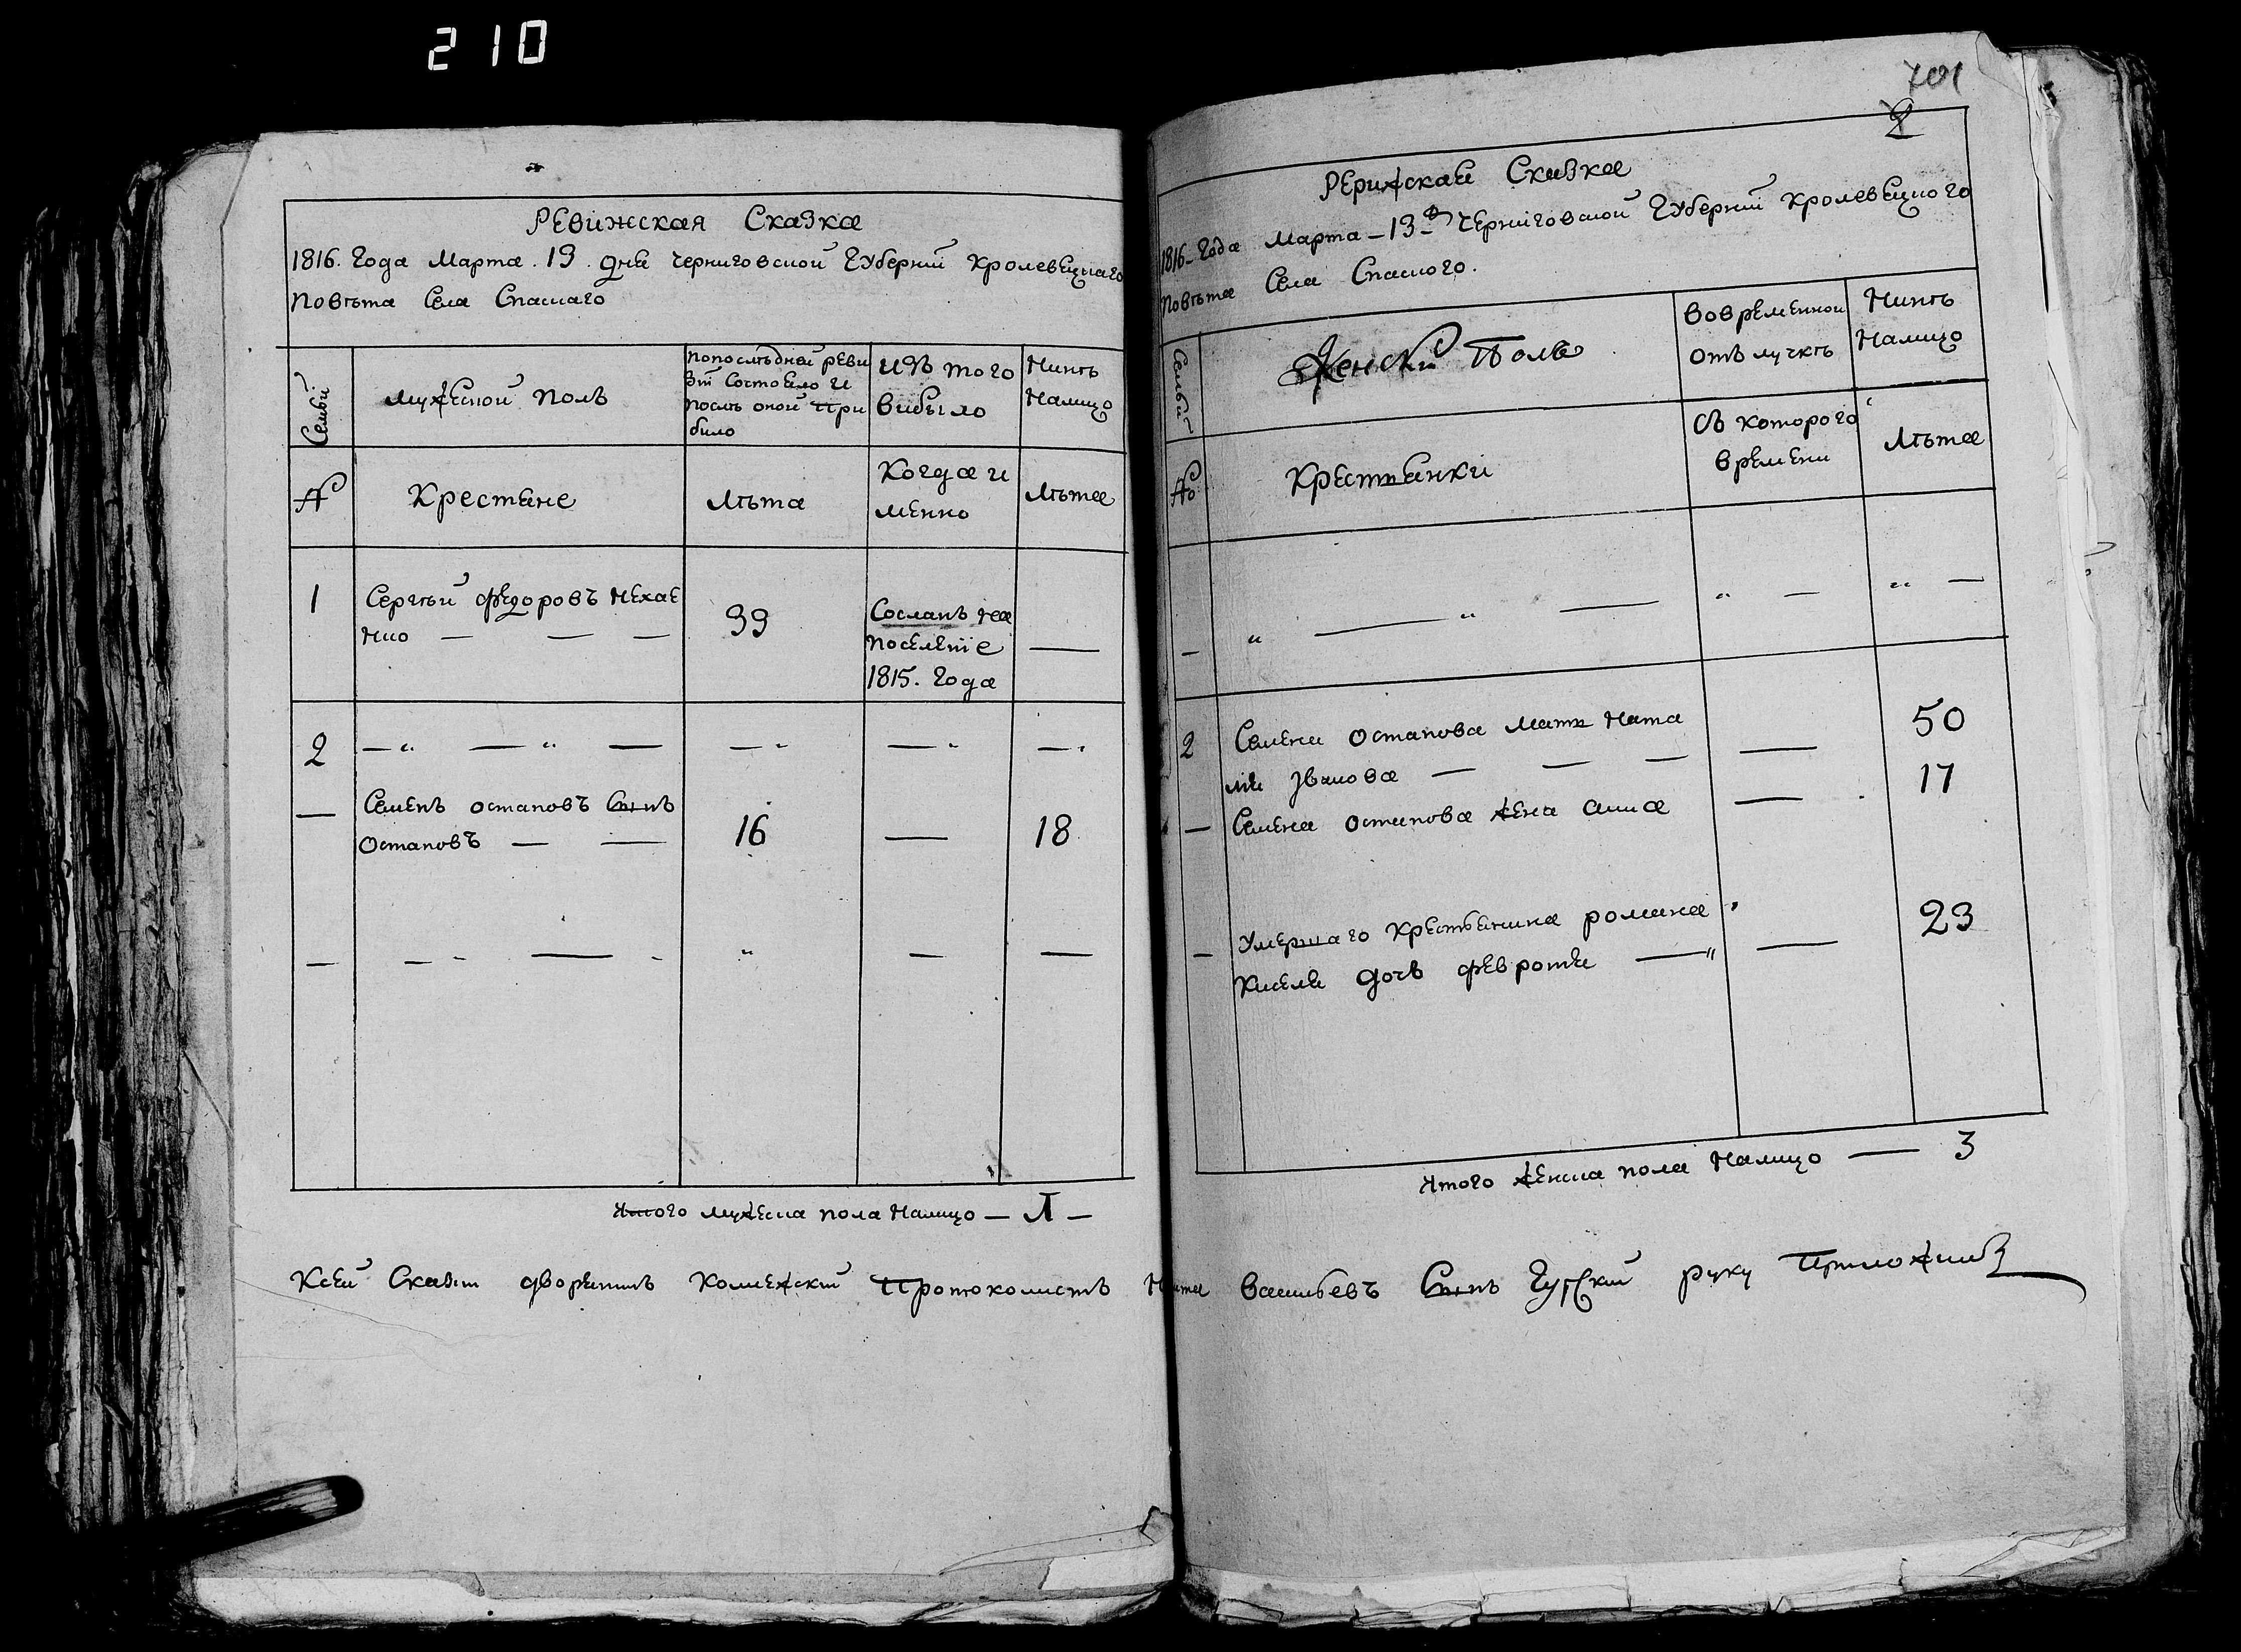 210
Ревижская Сказка
1816. Года Марта. 13. дня Черниговской Губернїи Кролевецкаго
Повѣта Села Спаскаго
Семьи
мужеской полъ
попослѣдней реви
зїи Состояло и
послѣ оной при
било
изъ того
вибыло
Нинѣ
Налицо
№
Крестяне
лѣта
Когда и
менно
лѣта
1
Сергѣй Федоровъ Нехае
нко
39
Сосланъ на
поселенїе
1815. Года
2
Семенъ остаповъ Сынъ
Остаповъ
16
18
Итого мужеска пола Налицо — 1 —
701
2
Ревижская Сказка
1816 Года Марта – 13 д Чернѣговской Губернїи Кролевецкого
Повѣта Села Спаского.
Семьи
Женский Полъ
Вовременной
отълучкѣ
Нинѣ
Налицо
№
Крестьянки
Съ которого
времени
Лѣта
2
Семена Остапова Мать Ната
лия Iванова
50
Семена Остапова жена анна
17
Умершаго Крестьянина романа
Киселя дочь февротия
23
Итого женска пола Налицо — 3
Ксей Сказки дворянинъ Колежский Протоколистъ Васильевъ Сынъ руку Приложилъ